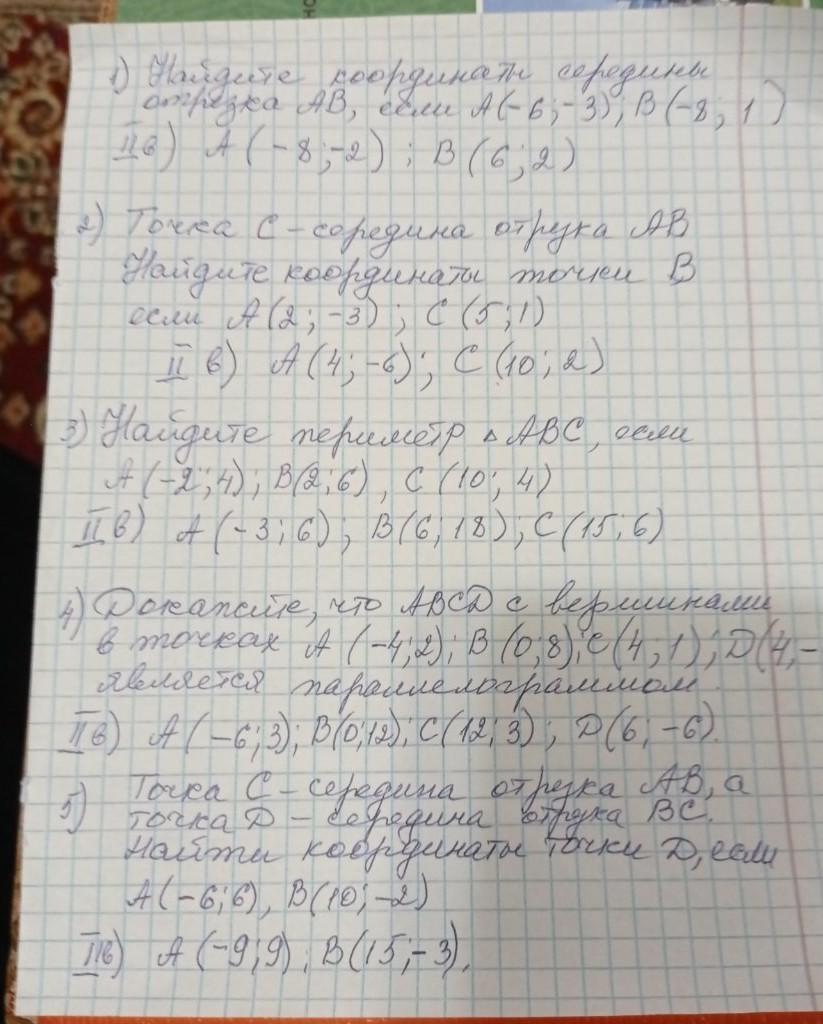 1) Найдите координаты середины
отрезка АВ, если А(-6;-3); В(-8; 1)
IIв) А(-8;-2); В(6;2)
2) Точка С-середина отрезка АВ
Найдите координаты точки В
если А(2; -3); С(5;1)
II в) А(4; -6); С(10; 2)
3) Найдите периметр △ АВС, если
А(-2;4); В(2;6), С(10; 4)
IIв) А(-3;6); В(6;18); С(15;6)
4) Докажите, что АВСD с вершинами
в точках А(-4;2); В(0;8); С(4;1); D(4,-
является параллелограммом.
IIв) А(-6;3); В(0;12); С(12;3); D(6;-6).
5) Точка С-середина отрезка АВ, а
точка D - середина отрезка ВС.
Найти координаты точки D, если
А(-6;6), В(10;-2)
IIв) А(-9;9); В(15;-3).